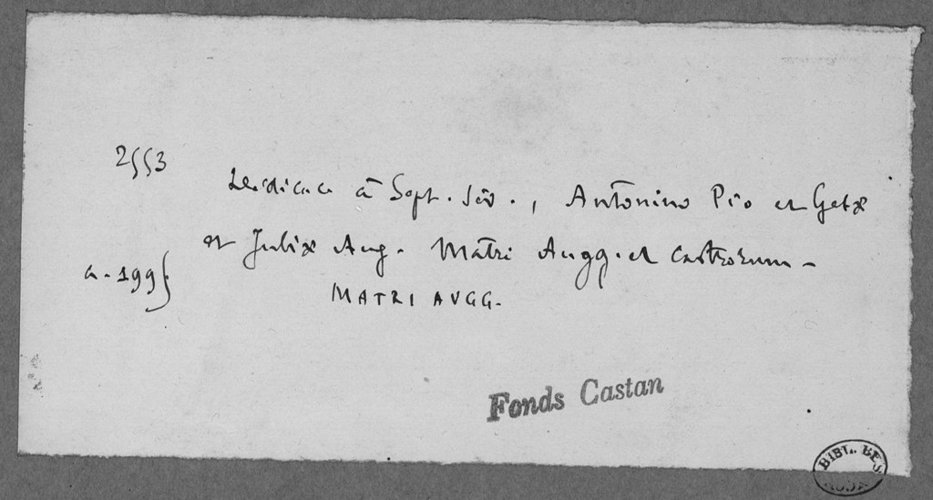 2553
Dedicace à Sept. Sev., Antonino Pio et Getæ
et Juliæ Aug. Matri Augg. et Castrorum -
a. 199
MATRI AVGG.
Fonds Castan
BIBL. BES